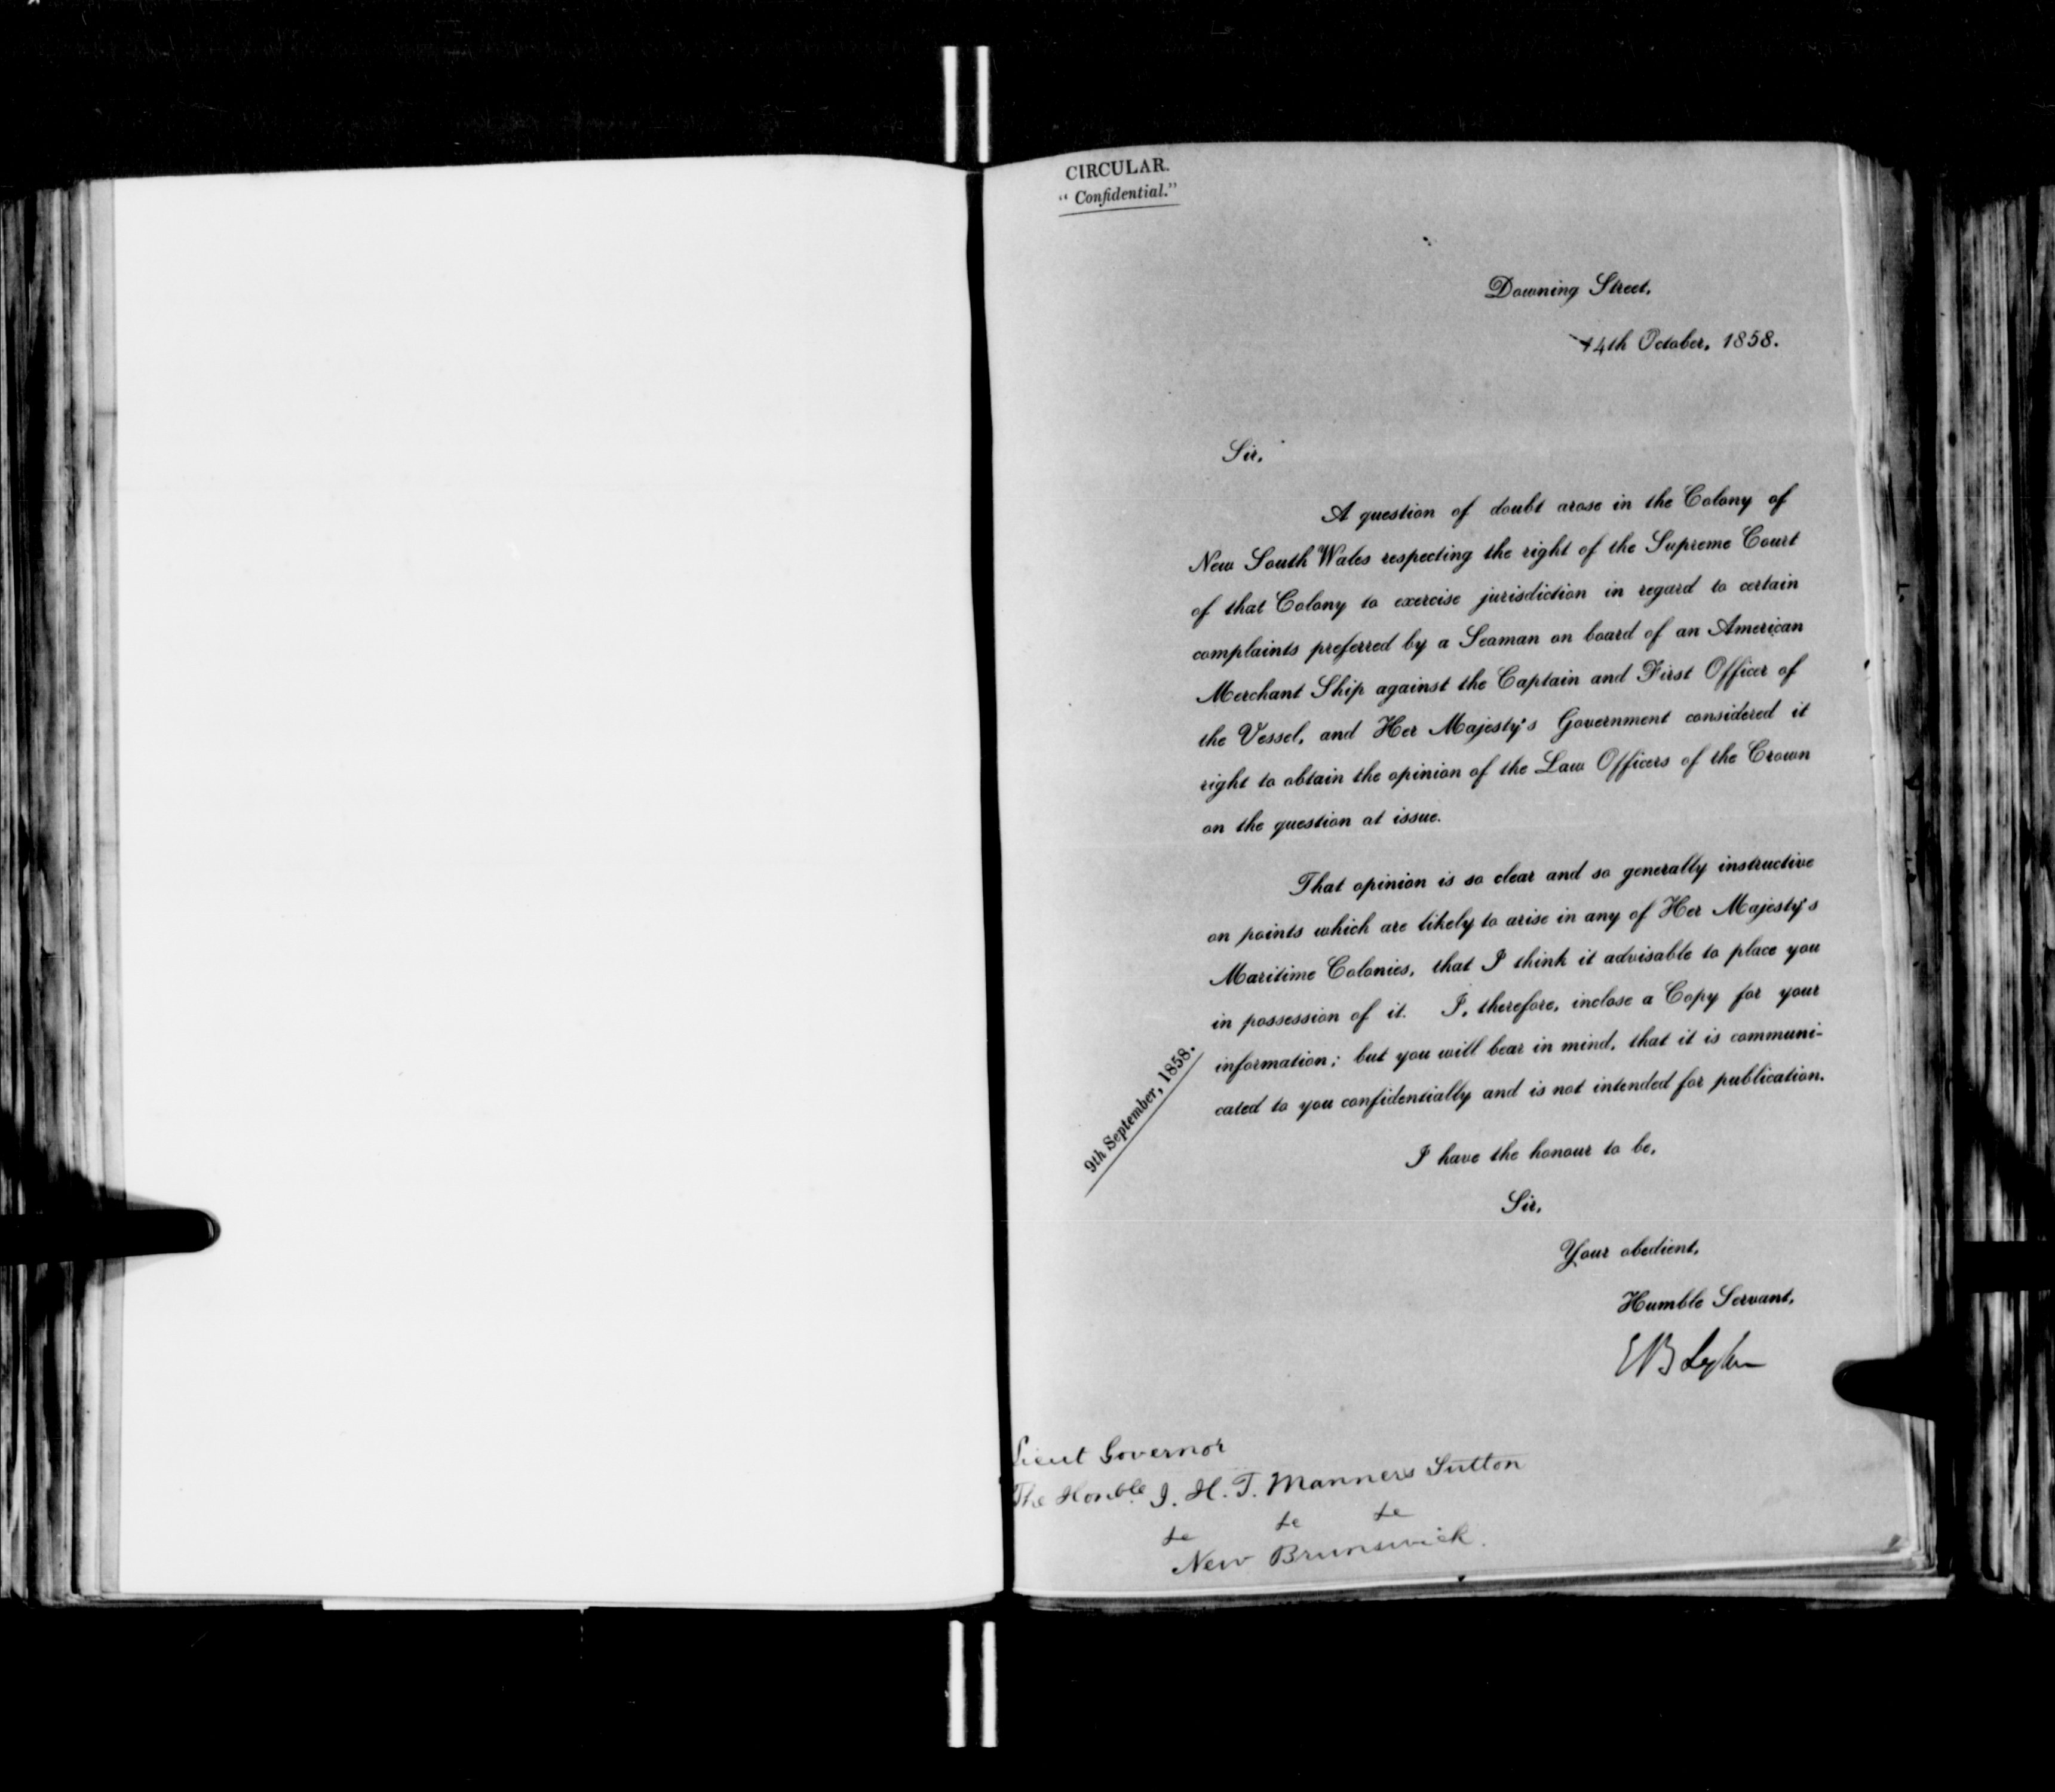 CIRCULAR.
"Confidential."
Downing Street,
14th October, 1858.
Sir,
A question of doubt arose in the Colony of
New South Wales respecting the right of the Supreme Court
of that Colony to exercise jurisdiction in regard to certain
complaints preferred by a Seaman on board of an American
Merchant Ship against the Captain and First Officer of
the Vessel, and Her Majesty's Government considered it
right to obtain the opinion of the Law Officers of the Crown
on the question at issue.
That opinion is so clear and so generally instructive
on points which are likely to arise in any of Her Majesty's
Maritime Colonies, that I think it advisable to place you
in possession of it. I, therefore, inclose a Copy for your
information; but you will bear in mind, that it is communi-
cated to you confidentially and is not intended for publication.
9th September, 1858.
I have the honour to be,
Sir,
Your obedient,
Humble Servant,
EB Lytton
Lieut Governor
The Honble J. H. T. Manners Sutton
&c &c &c
New Brunswick.